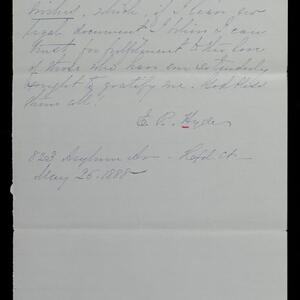 wishes, which, if I leave no
legal document I believe I can
trust for fulfilment to the love
of those who have ever so tenderly
sought to gratify me. God bless
them all!
E. P. Hyde
823 Asylum Av. Htfd. Ct.
May 25. 1888